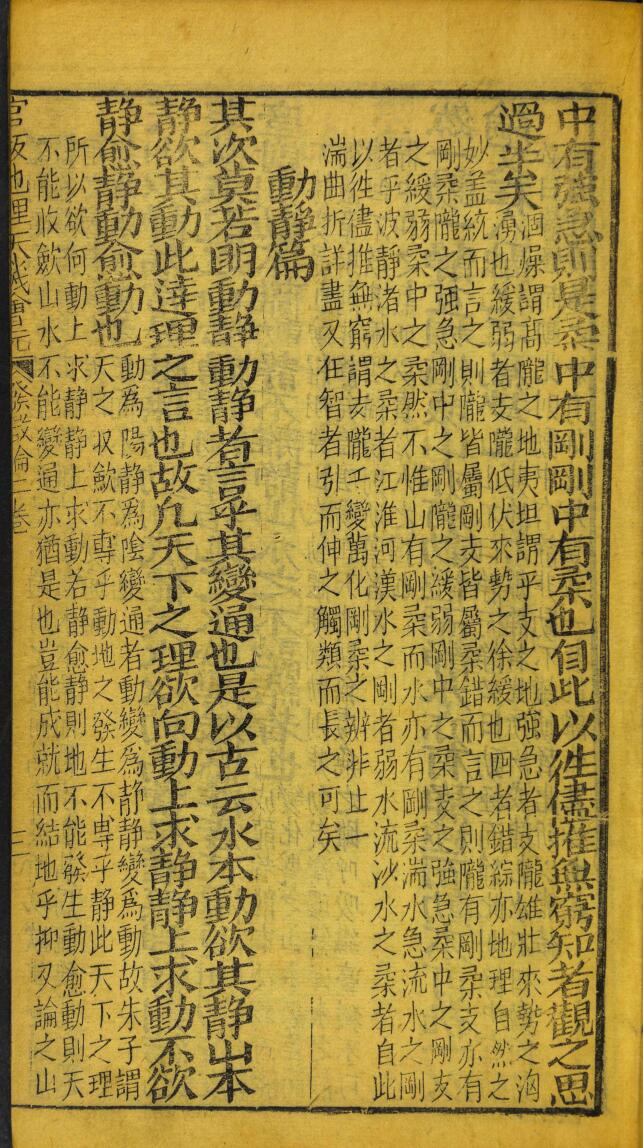 中有強急則是柔中有剛剛中有柔也自此以徃儘推無窮知者觀之思
過半矣
涸燥謂髙隴之地夷坦謂乎支之地強急者支隴雄壯來勢之洶
湧也緩弱者支隴低伏來勢之徐緩也四者錯綜亦地理自然之
妙盖統而言之則隴皆屬剛支皆屬柔錯而言之則隴有剛柔支亦有
剛柔隴之強急剛中之剛隴之緩弱剛中之柔支之強急柔中之剛支
之緩弱柔中之柔然不惟山有剛柔而水亦有剛柔湍水急流水之剛
者乎波静渚水之柔者江淮河漢水之剛者弱水流沙水之柔者自此
以徃儘推無窮謂支隴千變萬化剛柔之辨非止一
湍曲折詳盡又在智者引而伸之觸類而長之可矣
動静篇
其次莫若明動静動静者言乎其變通也是以古云水本動欲其静山本
静欲其動此達理之言也故凢天下之理欲向動上求静静上求動不欲
静愈静動愈動也
動為陽静為陰變通者動變為静静變為動故朱子謂
天之収歛不專乎動地之發生不専乎静此天下之理
所以欲何動上求静静上求動若静愈静則地不能發生動愈動則天
不能收歛山水不能變通亦猶是也豈能成就而結地乎抑又論之山
官板地理天機會元 卷二 三